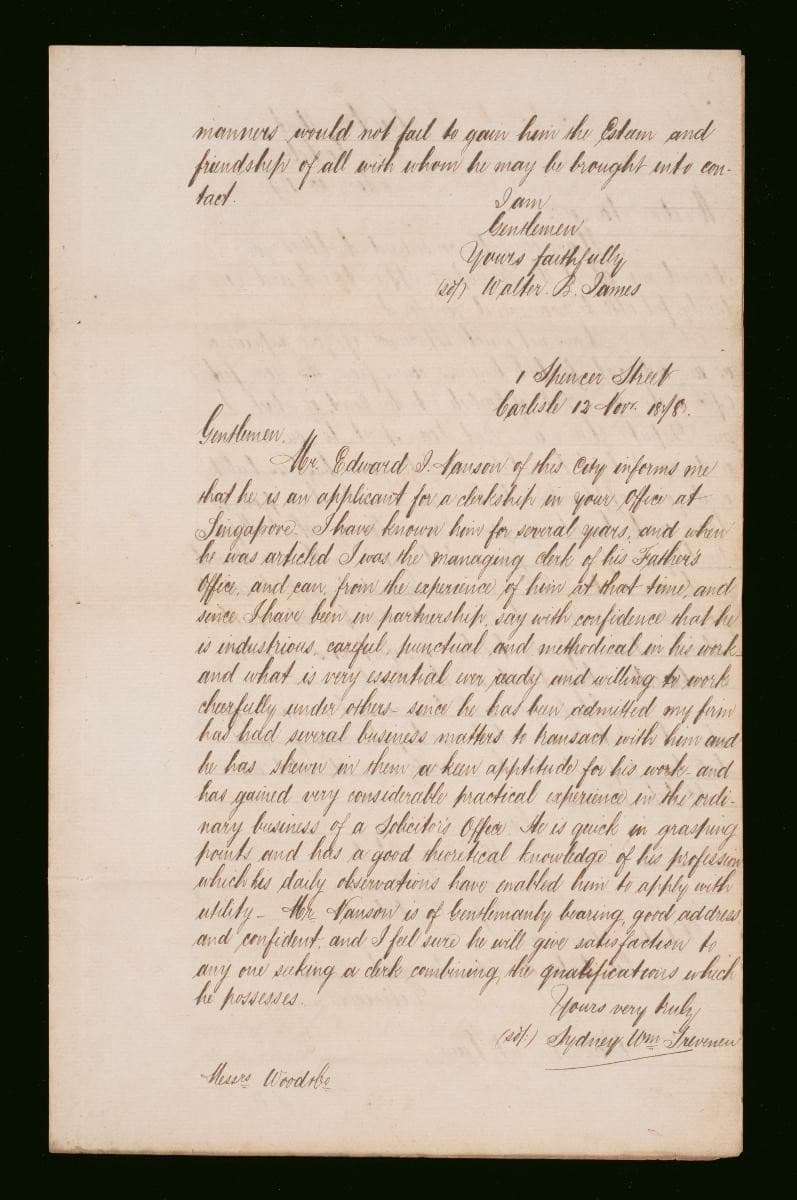 manners would not fail to gain him the Esteem and
friendship of all with whom he may be brought into con-
tact.
I am
Gentlemen
Yours faithfully
(sd/) Walter B. James
1 Spencer Street
Carlisle 12 Novr. 1878.
Gentlemen.
Mr. Edward J. Nanson of this City informs me
that he is an applicant for a clerkship in your Office at
Singapore. I have known him for several years, and when
he was articled I was the managing clerk of his Father's
Office, and can, from the experience of him at that time, and
since I have been in partnership, say with confidence that he
is industrious, careful, punctual and methodical in his work
and what is very essential ever ready and willing to work
cheerfully under others - since he has been admitted my firm
has had several business matters to transact with him and
he has shewn in them a keen apptitude for his work - and
has gained very considerable practical experience in the ordi-
nary business of a Solicitor's Office. He is quick in grasping
points and has a good theoretical knowledge of his profession
which his daily observations have enabled him to apply with
utility - Mr. Nanson is of Gentlemanly bearing, good address
and confident, and I feel sure he will give satisfaction to
any one seeking a clerk combining the qualifications which
he possesses.
Yours very truly
(sd/.) Sydney Wm. Trevenen
Messrs Wood & Co